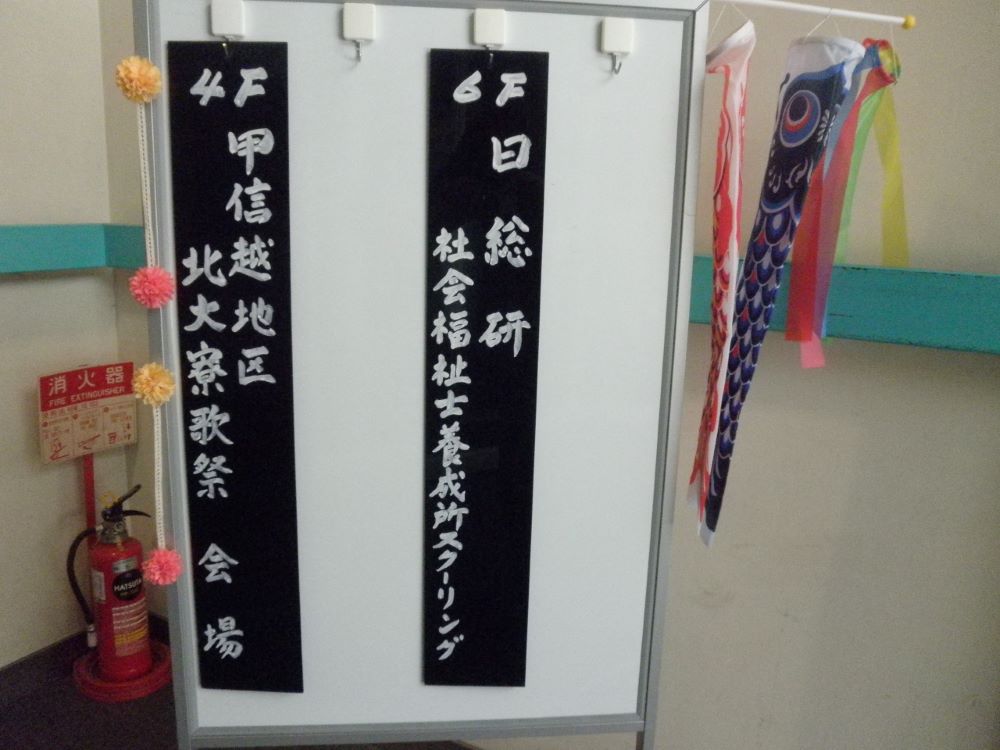 6F 日総研
社会福祉士養成所スクーリング
4F 甲信越地区
北大寮歌祭 会場
消火器
FIRE EXTINGUISHER
HATSUTA